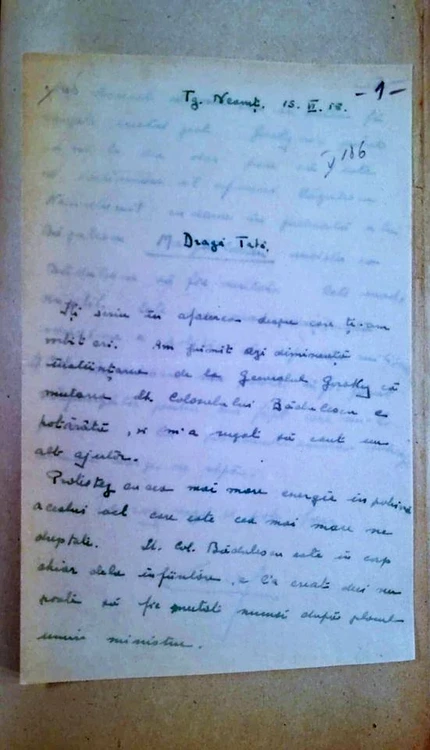 - 1 -
Tg. Neamț. 15. VI. 18.
V 186
Dragă Tată,
Îți scriu în afacerea despre care ți-am
vorbit eri. Am primit azi dimineață
înștiințarea de la Generalul că
mutarea Lt. Colonelului Bădulescu e
hotărâtă, și m'a rugat să caut un
alt ajutor.
Protestez cu cea mai mare energie împotriva
acestui act care este cea mai mare ne
dreptate. Lt. Col. Bădulescu este în corp
chiar dela înființare, e creat deci nu
poate să fie mutat numai după placul
unui ministru.